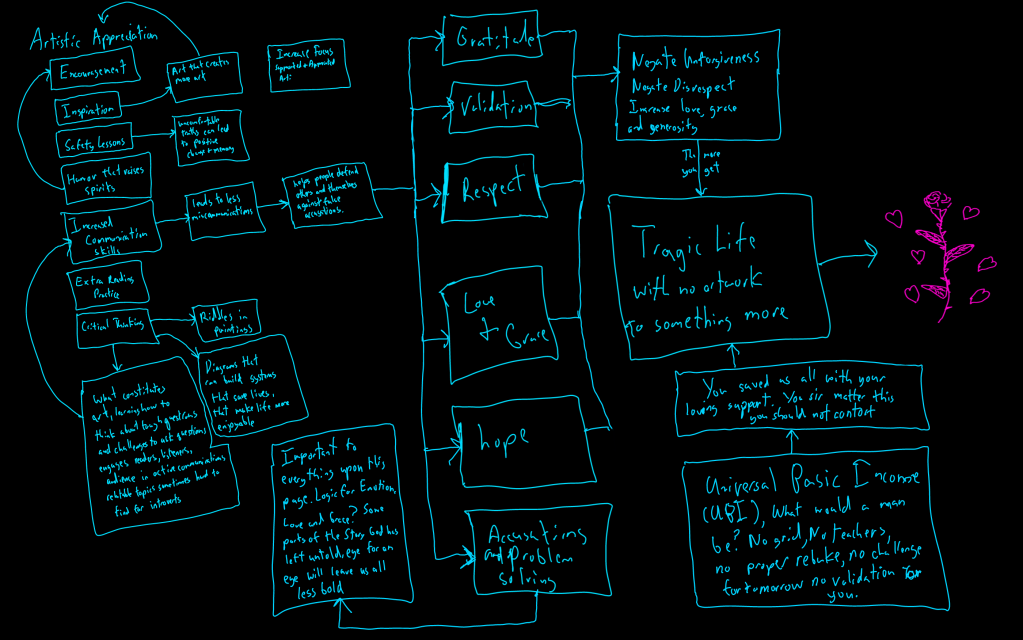 Artistic Appreciation
Encouragement
Art that creates
more art
Increase Focus
Supported + Appreciated
Art:
Inspiration
Safety Lessons
uncomfortable
truths can lead
to positive
change + memory
Humor that raises
spirits
Increased
Communication
skills
leads to less
miscommunications
helps people defend
others and themselves
against false
accusations.
Extra Reading
Practice
Critical Thinking
Riddles in
paintings
Diagrams that
can build systems
that save lives,
that make life more
enjoyable
What constitutes
art, learning how to
think about tough questions
and challenges to ask questions
engages readers, listeners,
audience in active communications
relatable topics sometimes hard to
find for introverts
Important to
everything upon this
page. Logic for Emotion,
Love and Grace? Some
parts of the Story God has
left untold, eye for an
eye will leave us all
less bold
Gratitude
Validation
Respect
Love
+
Grace
hope
Accusations
and problem
solving
Negate Unforgiveness
Negate Disrespect
Increase love, grace
and generosity
The more
you get
Tragic Life
with no artwork
to something more
You saved us all with your
loving support. You sir matter this
you should not contort
Universal Basic Income
(UBI), What would a man
be? No grid, No teachers,
no proper rebuke, no challenge
for tomorrow no validation for
you.